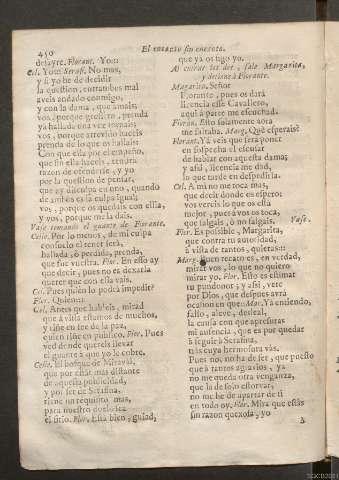 450
El encanto sin encanto.
desayre. Florant. Yo::
Cel. Yo:: Seraf. No mas,
y si yo he de decidir
la question, entrambos mal
aveis andado conmigo,
y con la dama, que amais;
vos, porque grossero, prenda
ya hallada una vez tomais;
vos, porque atrevido haceis
prenda de lo que os hallais:
Con que ella por el empeño,
que sin ella haceis, tendrà
razon de ofenderse, y yo
por la question de pensar,
que ay disculpa en uno, quando
de ambos es la culpa igual;
vos, porque os quedais con ella,
y vos, porque me la dais.
Vase tomando el guante de Florante.
Celio. Por lo menos, de mi culpa
consuelo el tener serà,
hallada, ò perdida, prenda,
que fue vuestra. Flor. En esso ay
que decir, pues no es dexarla
querer que con ella vais.
Cel. Pues quien lo podrà impedir?
Flor. Quien::
Cel. Antes que hableis, mirad
que à vista estamos de muchos,
y riñe en fee de la paz,
quien riñe en publico. Flor. Pues
ved donde quereis llevar
el guante à que yo le cobre.
Celio. El bosque de Miraval,
que por estàr mas distante
de aquesta publicidad,
y por ser de Serafina,
tiene un requisito mas,
para nuestro duelo sea
el sitio. Flor. Està bien, guiad,
que yà os sigo yo.
Al entrar los dos, sale Margarita,
y detiene à Florante.
Margarita. Señor
Florante, pues os darà
licencia esse Cavallero,
aqui à parte me escuchad.
Floran. Esto solamente aora
me faltaba. Marg. Què esperais?
Florant. Yà veis que serà poner
en sospecha el escusar
de hablar con aquesta dama;
y assi, licencia me dad,
lo que tarde en despedirla.
Cel. A mi no me toca mas,
que decir donde os espero:
vos vereis lo que os està
mejor, pues à vos os toca,
que salgais, ò no salgais. Vase.
Flor. Es possible, Margarita,
que contra tu autoridad,
à vista de tantos, quieras::
Marg. Buen recato es, en verdad,
mirar vos, lo que no quiero
mirar yo. Flor. Esto es estimar
tu pundonor; y assi, vete
por Dios, que despues avrà
ocasion en que:: Mar. Yà entiendo,
falso, aleve, desleal,
la causa con que apresuras
mi ausencia, que es por quedar
à seguir à Serafina,
tras cuya hermosura vàs.
Pues no, no ha de ser, que puesto
que à tantos agravios, ya
no me queda otra venganza,
que la de solo estorvar,
no me he de apartar de ti
en todo oy. Flor. Mira que estàs
sin razon quexosa, yo